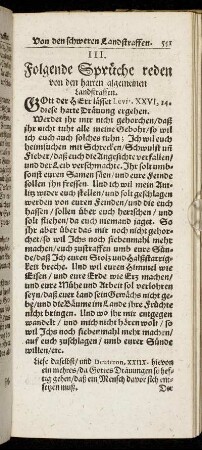 Von den schweren Landstraffen. 553
III.
Folgende Sprüche reden
von den harten algemeinen
Landstraffen.
GOtt der HErr lässet Levit. XXVI, 14.
diese harte Dräwung ergehen.
Werdet ihr mir nicht gehorchen/daß
ihr nicht tuht alle meine Gebohr/so wil
ich euch auch solches tuhn; Jch wil euch
heimsuchen mit Schrecken/Schwulst uñ
Fieber/daß euch die Angesichte verfallen/
und der Leib verschmachte. Jhr solt umb-
sonst euren Samen säen/und eure Feinde
sollen ihn fressen. Und ich wil mein Ant-
litz wider euch stellen/und solt geschlagen
werden von euren Feinden/und die euch
hassen/sollen über euch herschen/und
solt fliehen/da euch niemand jaget. So
Jhr aber über das mir noch nicht gehor-
chet/so wil Jchs noch siebenmahl mehr
machen/euch zustraffen umb eure Sün-
de/daß Jch euren Stolz und Halsstarrig-
keit breche. Und wil euren Himmel wie
Eisen/und eure Erde wie Erz machen/
und eure Mühe und Arbeit sol verlohren
seyn/daß euer Land sein Gewächs nicht ge-
be/und die Bäume im Lande ihre Früchte
nicht bringen. Und wo ihr mir entgegen
wandelt/und mich nicht hören wolt/so
wil Jchs noch siebenmahl mehr machen/
auf euch zuschlagen/umb eurer Sünde
willen/etc.
Liese daselbst/und Deuteron. XXIIX. hievon
ein mehres/da Gottes Dräuungen so hef-
tig gehen/daß ein Mensch davor sich ent-
setzen muß.